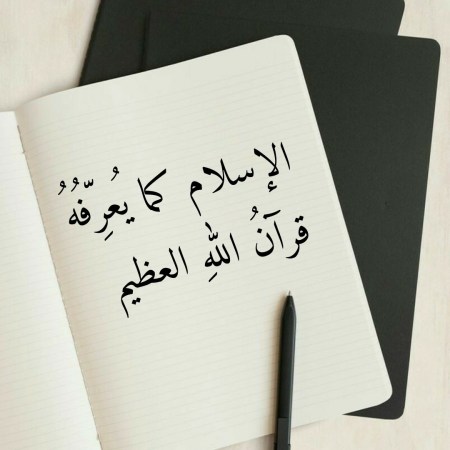 الإسلام كما يُعرِّفُهُ
قرآنُ اللهِ العظيم